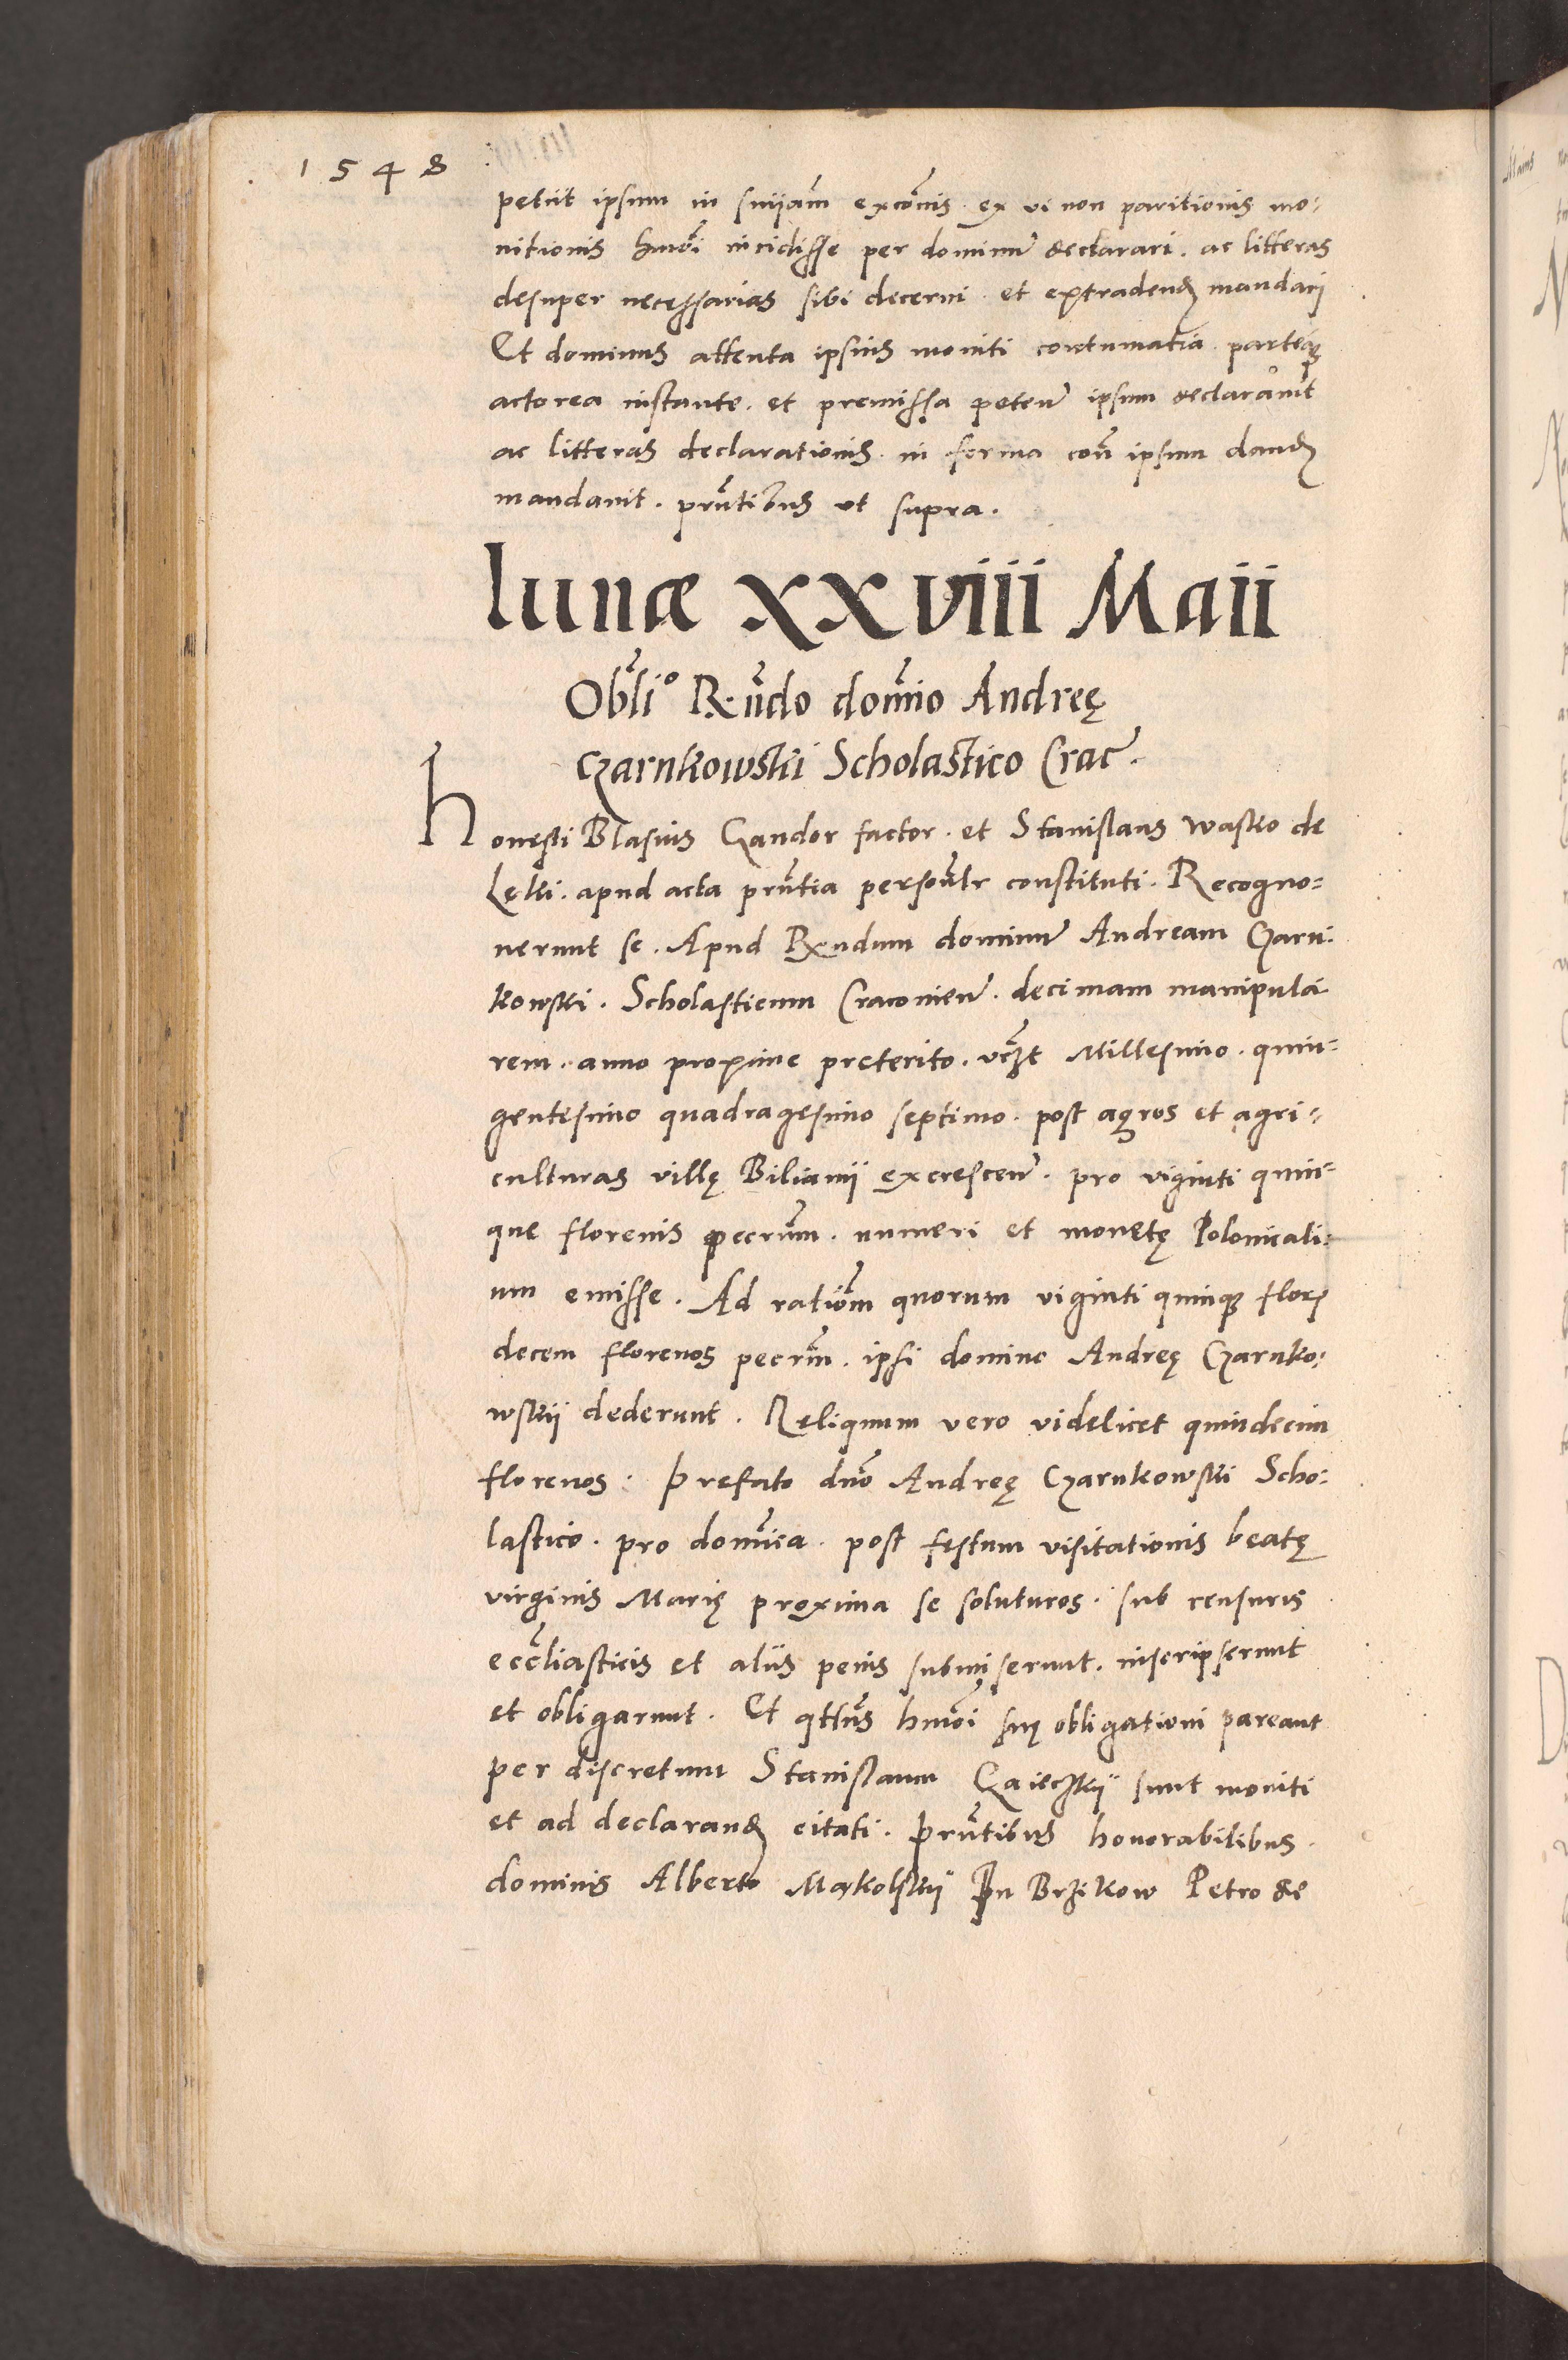 1548
petiit ipsum in sniiam excōīs ex vi non paritionis mo-
nitionis hmōi incidisse per dominum declarari. ac litteras
desuper necessarias sibi decerni et extradendꝭ mandari
Et dominus attenta ipsius moniti contumatia parteqꝫ
actorea instante. et premissa peten ipsum declarauit
ac litteras declarationis in forma coñ ipsum dandꝭ
mandauit. prn̄tibus vt supra.
lunæ xxviii Maii
Obli° R.ndo domīo Andreę
Czarnkowski Scholastico Crac.
Honesti Blasius Gandor factor. et Stanislaus Wasko de
Lęki. apud acta prn̄tia personlr constituti. Recogno-
uerunt se. Apud Rxndum dominum Andream Czarn-
kowski. Scholasticum Cracouien. decimam manipula
rem. anno proxime preterito. vczt Millesimo. quin-
gentesimo quadragesimo septimo. post agros et agri-
culturas villę Bilianii excrescen. pro viginti quin-
que florenis pecrum. numeri et monetę Polonicali-
um emisse. Ad ratiom quorum viginti quinqꝫ flor
decem florenos pecrm. ipsi domino Andreę Czarnko-
wskii dederunt. Reliquum vero videlicet quindecim
florenos: Prefato dno Andreę Czarnkowski Scho-
lastico. pro domīca. post festum visitationis beatę
virginis Marię proxima se soluturos. sub censuris
eccliasticis et aliis penis submiserunt. inscripserunt
et obligarunt. Et qtn̄s hmōi suę obligationi pareant
per discretum Stanislaum sunt moniti
et ad declarandꝭ citati. Prn̄tibus honorabilibus.
dominis Alberto Mąkolskii In Brzikow Petro de